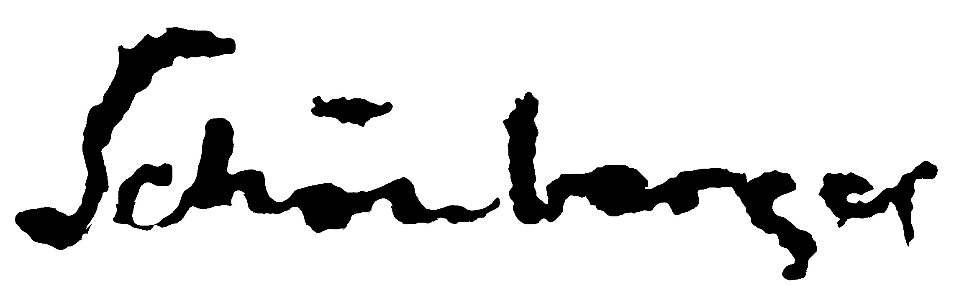 Schönberger